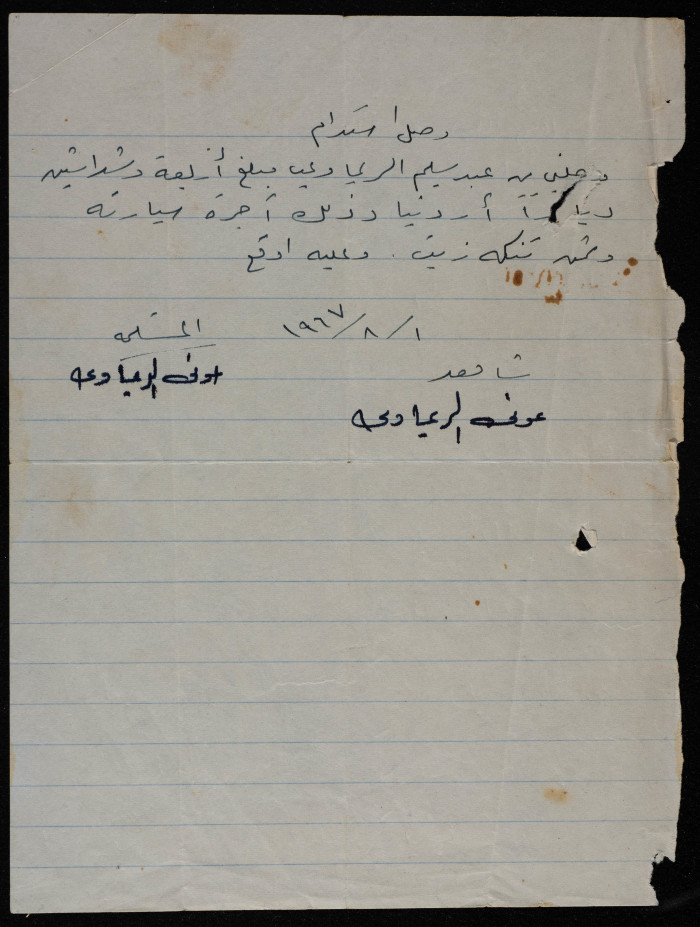 وصل استلام
وصلني من عبد سليم الريماوي مبلغ أربعة وثلاثين
ديناراً أردنيا وذلك آجرة سيارته
وثمن تنكه زيت. وعليه اوقع
١/٨/١٩٦٧ المستلم
شاهد
عوني الريماوي
عوني الريماوي